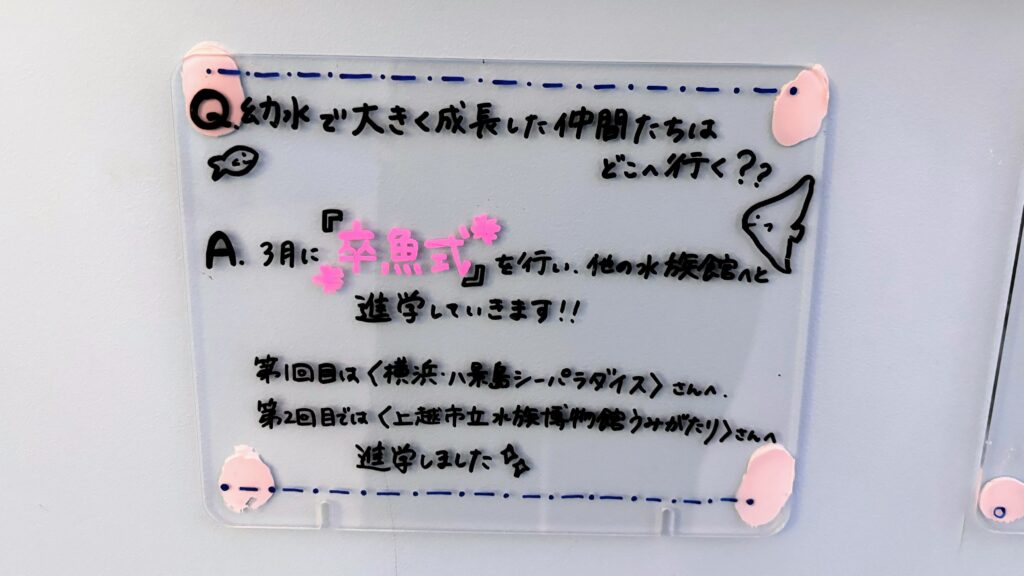 Q.幼水で大きく成長した仲間たちは
どこへ行く??
A. 3月に『卒魚式』を行い、他の水族館へと
進学していきます!!
第1回目は〈横浜・八景島シーパラダイス〉さんへ.
第2回目では〈上越市立水族博物館うみがたり〉さんへ
進学しました